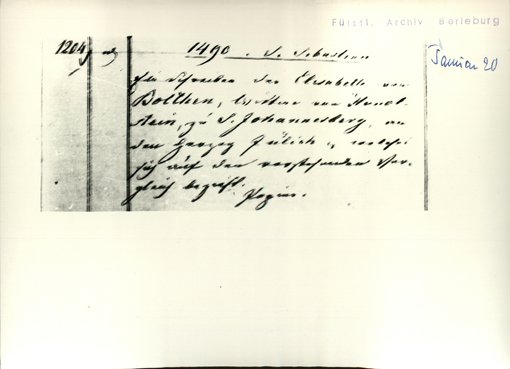 Fürstl. Archiv Berleburg
Januar 20
1204
1490. S. Sebastian
Ein Schreiben der Elisabeth von
Bolchen, Wittwe von Hunol-
stein, zu S. Johannesberg, an
den Herzog Jülich, welches
sich auf den vorstehenden Ver-
gleich bezieht.
Papier.